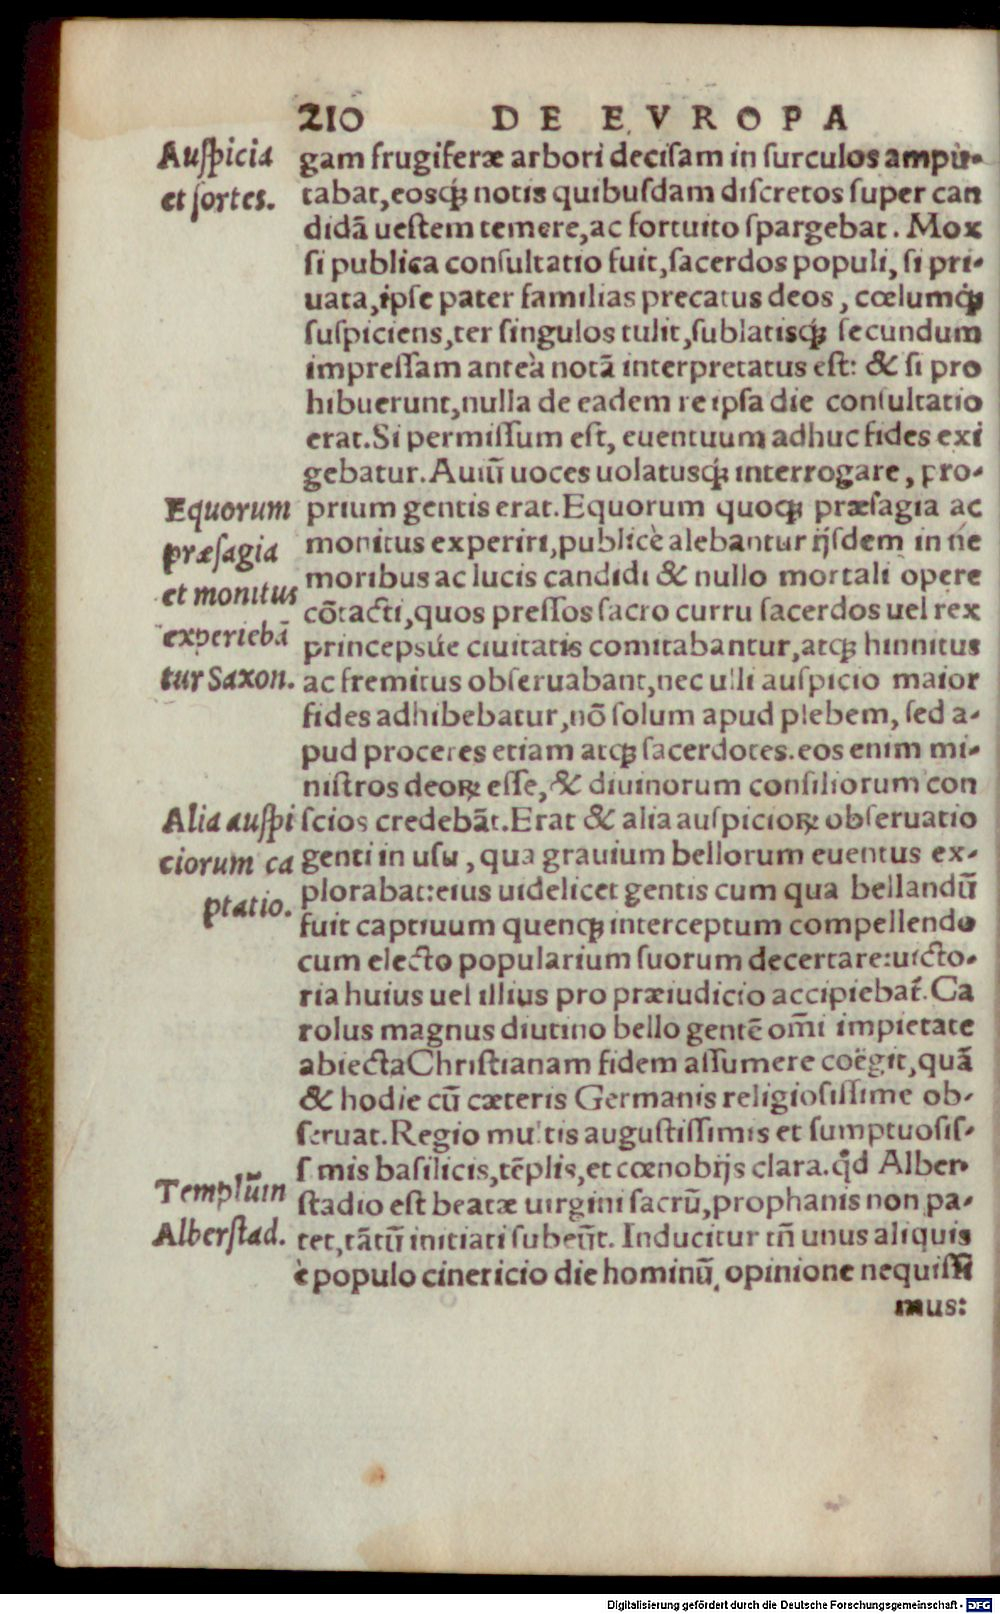 210 DE EVROPA
Auſpicia
et ſortes.
gam frugiferæ arbori deciſam in ſurculos ampu-
tabat, eosq́ꝫ notis quibuſdam diſcretos ſuper can
didā ueſtem temere, ac fortuito ſpargebat. Mox
ſi publica conſultatio fuit, ſacerdos populi, ſi pri-
uata, ipſe pater familias precatus deos, cœlumq́ꝫ
ſuſpiciens, ter ſingulos tulit, ſublatisq́ꝫ ſecundum
impreſſam anteà notā interpretatus eſt: & ſi pro
hibuerunt, nulla de eadem re ipſa die conſultatio
erat. Si permiſſum eſt, euentuum adhuc fides exi
gebatur. Auiū uoces uolatusq́ꝫ interrogare, pro-
Equorum
præſagia
et monitus
experiebā
tur Saxon.
prium gentis erat. Equorum quoqꝫ præſagia ac
monitus experiri, publicè alebantur ijſdem in ne
moribus ac lucis candidi & nullo mortali opere
cōtacti, quos preſſos ſacro curru ſacerdos uel rex
princepsúe ciuitatis comitabantur, atqꝫ hinnitus
ac fremitus obſeruabant, nec ulli auſpicio maior
fides adhibebatur, nō ſolum apud plebem, ſed a-
pud proceres etiam atqꝫ ſacerdotes. eos enim mi-
niſtros deoꝝ eſſe, & diuinorum conſiliorum con
Alia auſpi
ciorum ca
ptatio.
ſcios credebāt. Erat & alia auſpicioꝝ obſeruatio
genti in uſu, qua grauium bellorum euentus ex-
plorabat: eius uidelicet gentis cum qua bellandū
fuit captiuum quenqꝫ interceptum compellendo
cum electo popularium ſuorum decertare: uicto-
ria huius uel illius pro præiudicio accipiebat̄. Ca
rolus magnus diutino bello gentē om̄i impietate
abiecta Chriſtianam fidem aſſumere coëgit, quā
& hodie cū cæteris Germanis religioſiſſime ob-
ſeruat. Regio multis auguſtiſſimis et ſumptuoſiſ-
ſimis baſilicis, tēplis, et cœnobijs clara. qd̓ Alber-
Templūm
Alberſtad.
ſtadio eſt beatæ uirgini ſacrū, prophanis non pa-
tet, tātū initiati ſubeūt. Inducitur tn̄ unus aliquis
è populo cinericio die hominū, opinione nequiſſi
mus:
Digitalisierung gefördert durch die Deutsche Forschungsgemeinschaft - DFG